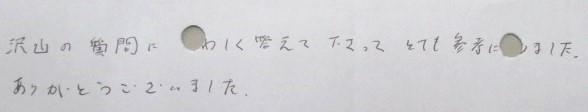 沢山の質問に わしく答えて下さって とても参考に ました.
ありがとうございました.